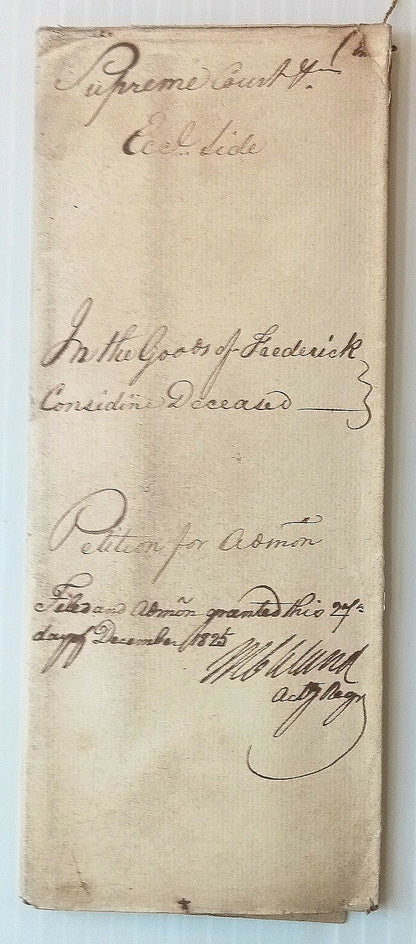 Supreme Court
Eccl. Side
In the Goods of Frederick
Considine Deceased
Petition for Admõn
Filed and Admõn granted this 27th
day of December 1825
Actg Regr